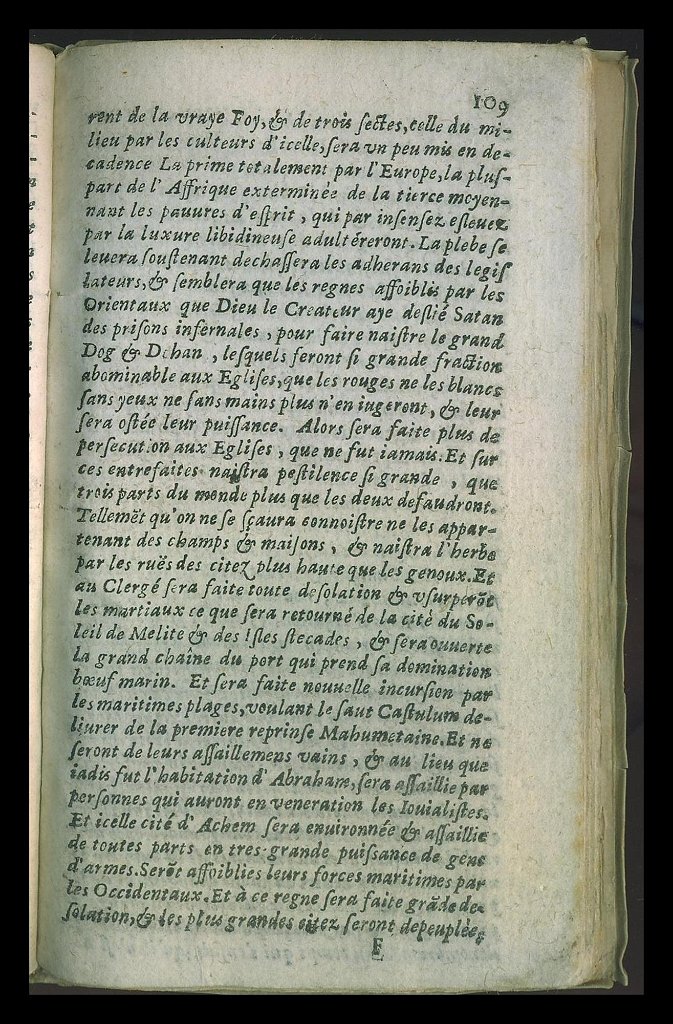 109
rent de la vraye Foy, & de trois ſectes, celle du mi-
lieu par les culteurs d'icelle, ſera vn peu mis en de-
cadence La prime totalement par l'Europe, la pluſ-
part de l'Affrique exterminée de la tierce moyen-
nant les pauures d'eſprit, qui par inſenſez eſleuez
par la luxure libidineuſe adultéreront. La plebe ſe
leuera ſouſtenant dechaſſera les adherans des legiſ
lateurs, & ſemblera que les regnes affoiblis par les
Orientaux que Dieu le Createur aye deſlié Satan
des priſons infernales, pour faire naiſtre le grand
Dog & Dohan, leſquels feront ſi grande fraction
abominable aux Egliſes, que les rouges ne les blancs
ſans yeux ne ſans mains plus n'en iugeront, & leur
ſera oſtée leur puiſſance. Alors ſera faite plus de
perſecution aux Egliſes, que ne fut iamais. Et ſur
ces entrefaites naiſtra peſtilence ſi grande, que
trois parts du monde plus que les deux defaudront.
Tellemēt qu'on ne ſe ſçaura connoiſtre ne les appar-
tenant des champs & maiſons, & naiſtra l'herbe
par les ruës des citez plus haute que les genoux. Et
au Clergé ſera faite toute deſolation & vſurperōt
les martiaux ce que ſera retourné de la cité du So-
leil de Melite & des Iſles ſtecades, & ſera ouuerte
la grand chaîne du port qui prend ſa domination
bœuf marin. Et ſera faite nouuelle incurſion par
les maritimes plages, voulant le ſaut Caſtulum de-
liurer de la premiere reprinſe Mahumetaine. Et ne
ſeront de leurs aſſaillemens vains, & au lieu que
iadis fut l'habitation d'Abraham, ſera aſſaillie par
perſonnes qui auront en veneration les Iouialiſtes.
Et icelle cité d'Achem ſera enuironnée & aſſaillie
de toutes parts en tres-grande puiſſance de gens
d'armes. Serōt affoiblies leurs forces maritimes par
les Occidentaux. Et à ce regne ſera faite grāde de-
ſolation, & les plus grandes citez ſeront depeuplées
E